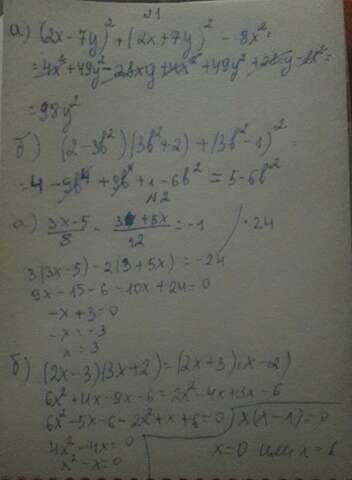 №1
а) (2x-7y)² + (2x+7y)² - 8x² =
= 4x² + 49y² - 28xy + 4x² + 49y² + 28xy - 8x² =
= 98y²
б) (2-3b²)(3b²+2) + (3b²-1)² =
= 4 - 9b⁴ + 9b⁴ + 1 - 6b² = 5 - 6b²
№2
а) (3x-5)/8 - (3+5x)/12 = -1 | · 24
3(3x-5) - 2(3+5x) = -24
9x - 15 - 6 - 10x + 24 = 0
-x + 3 = 0
-x = -3
x = 3
б) (2x-3)(3x+2) = (2x+3)(x-2)
6x² + 4x - 9x - 6 = 2x² - 4x + 3x - 6
6x² - 5x - 6 - 2x² + x + 6 = 0
4x² - 4x = 0
x² - x = 0
x(x-1) = 0
x = 0 или x = 1